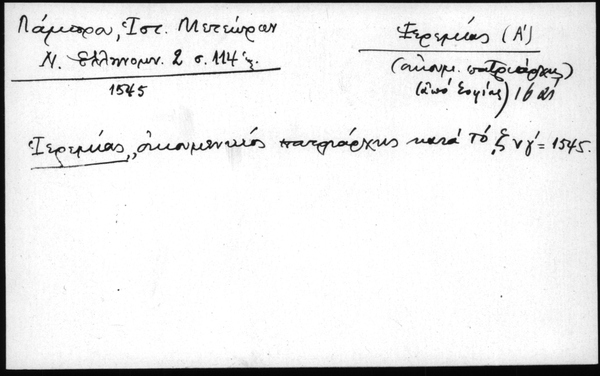 Λάμπρου, Ἱστ. Μετεώρων
Ν. Ἑλληνομν. 2 σ. 114 ἑξ.
1545
Ἱερεμίας (Α')
(οἰκουμ. πατριάρχης)
(ἀπό Σοφίας)
Ἱερεμίας, οἰκουμενικός πατριάρχης κατά τό ζνγ' = 1545.